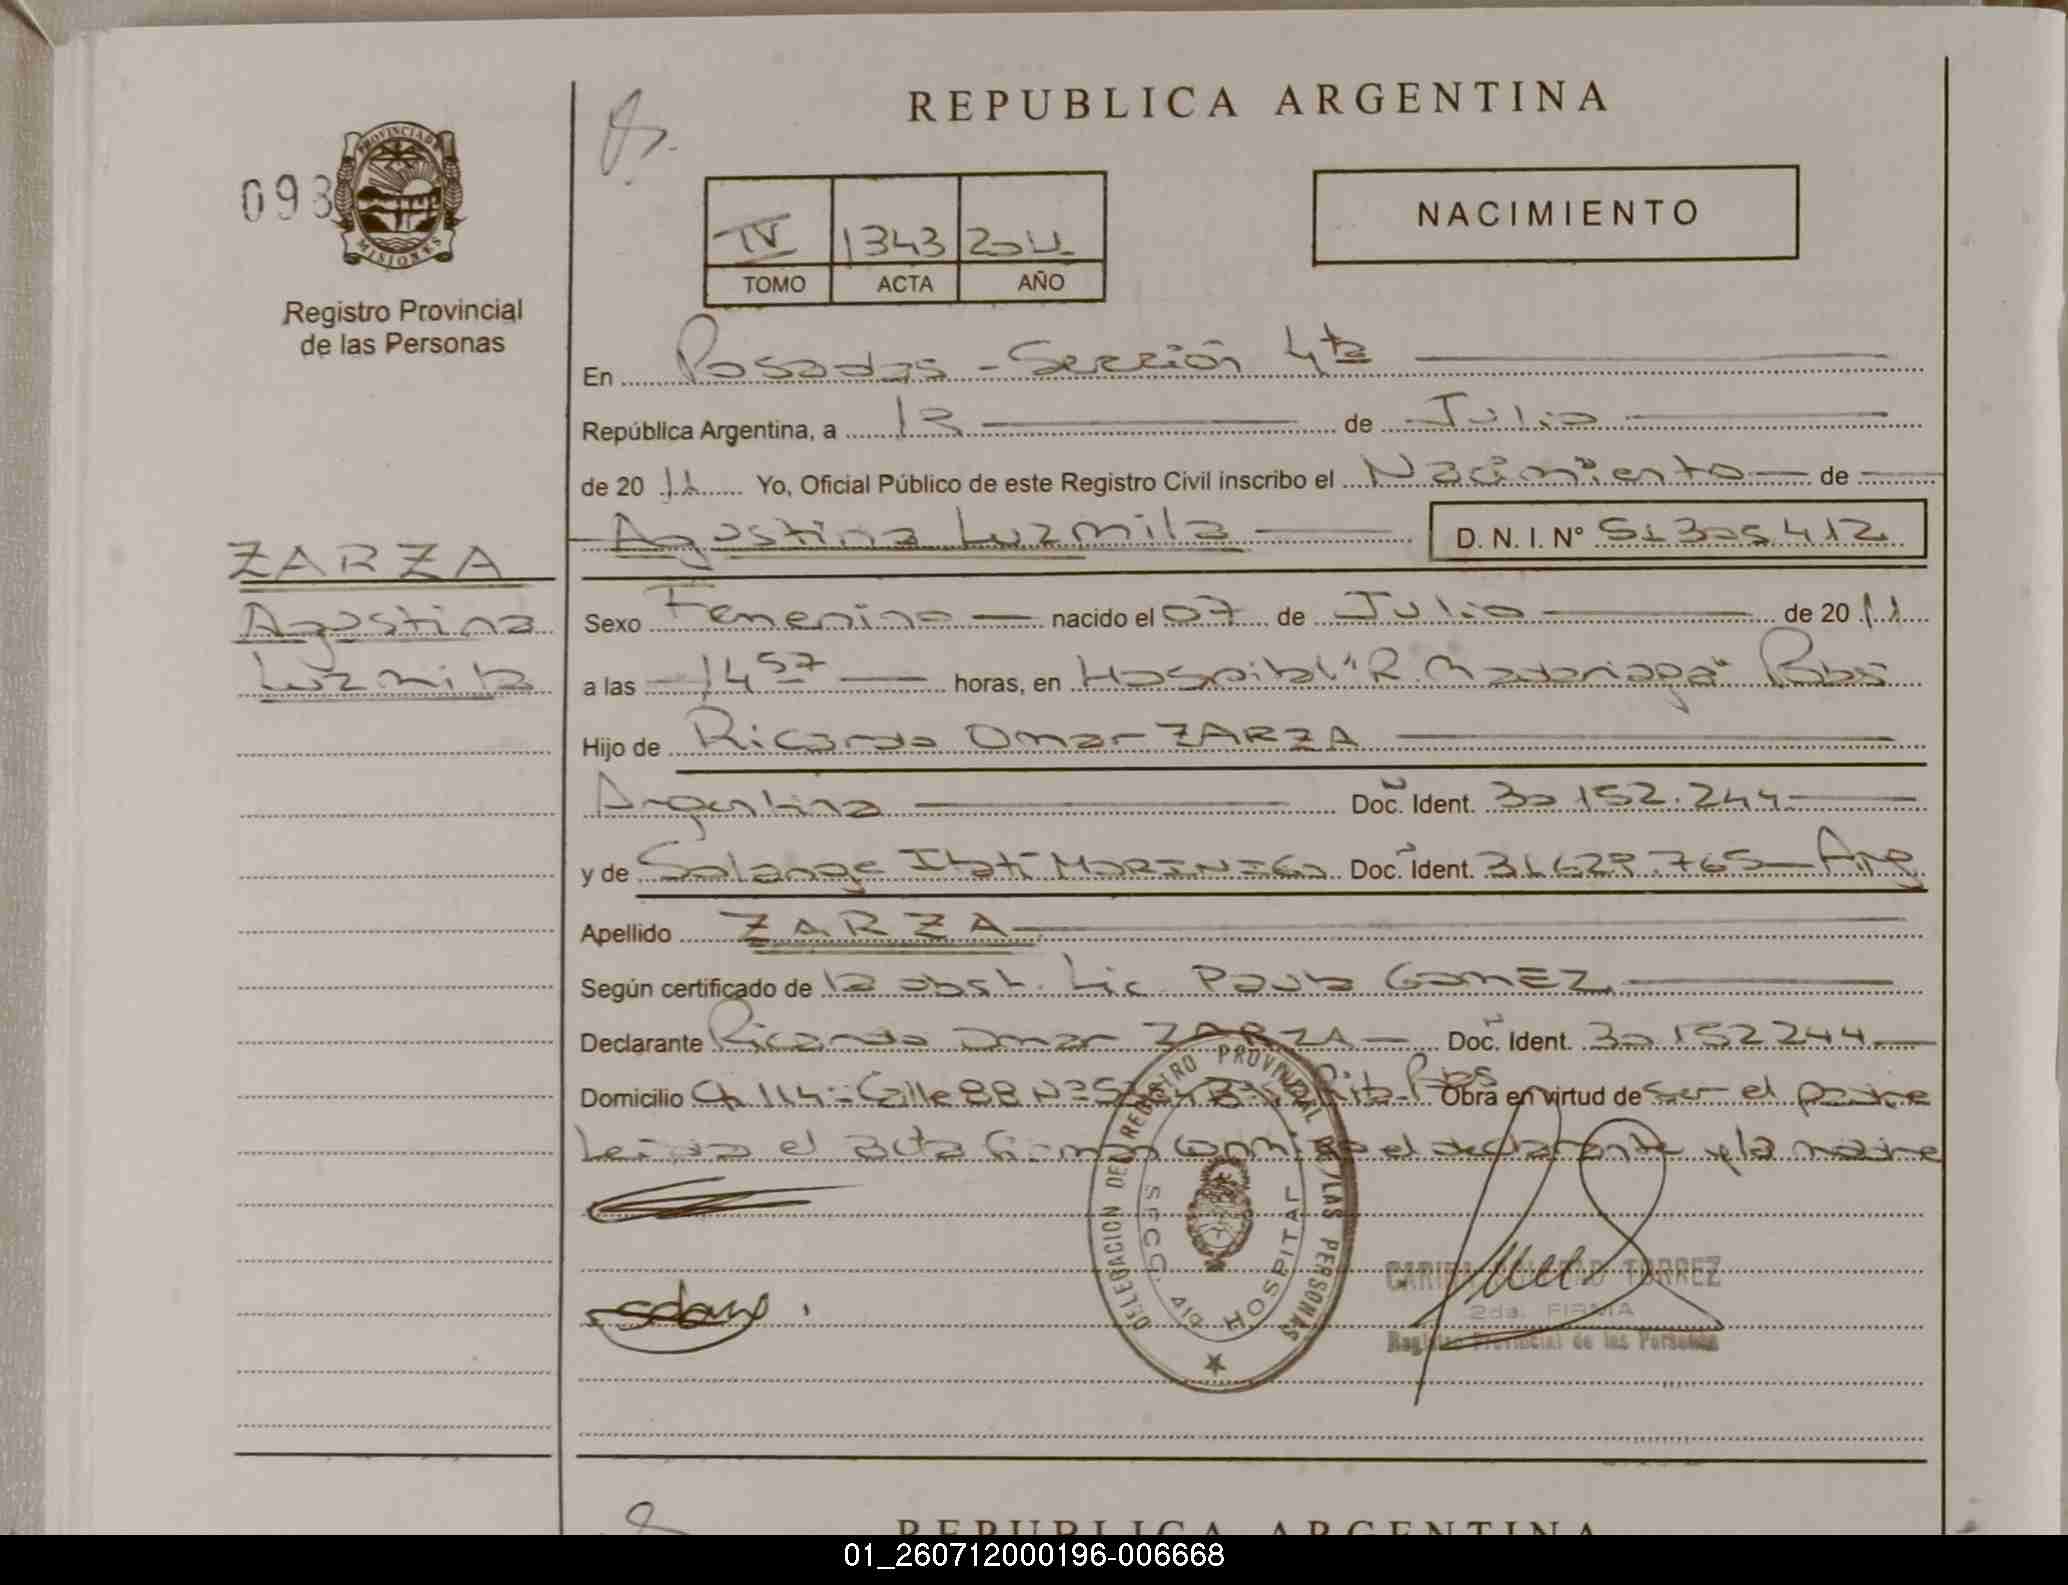 REPUBLICA ARGENTINA
093
PROVINCIA DE
MISIONES
Registro Provincial
de las Personas
NACIMIENTO
IV 1343 2011
TOMO ACTA AÑO
En Posadas - Sección 4ta
República Argentina, a 13 de Julio
de 20 11 Yo, Oficial Público de este Registro Civil inscribo el Nacimiento de
Agustina Luzmila D. N. I. Nº 51305412
ZARZA
Agustina
Luzmila
Sexo Femenino nacido el 07 de Julio de 20 11
a las 14 57 horas, en Hospital "R. Madariaga" Pdas
Hijo de Ricardo Omar ZARZA
Argentina Doc. Ident. 30.152.244
y de Solange Itatí MORINIGO Doc. Ident. 31.629.765 Arg
Apellido ZARZA
Según certificado de la obst. Lic. Paula GOMEZ
Declarante Ricardo Omar ZARZA Doc. Ident. 30 152 244
Domicilio Ch 114 - Calle 88 Nº Rita Pdas Obra en virtud de ser el padre
Leída el acta firman conmigo el declarante y la madre
DELEGACION DEL REGISTRO PROVINCIAL DE LAS PERSONAS
SECC. 4ta HOSPITAL
TORREZ
2da. FIRMA
Registro Provincial de las Personas
REPUBLICA ARGENTINA
01_260712000196-006668